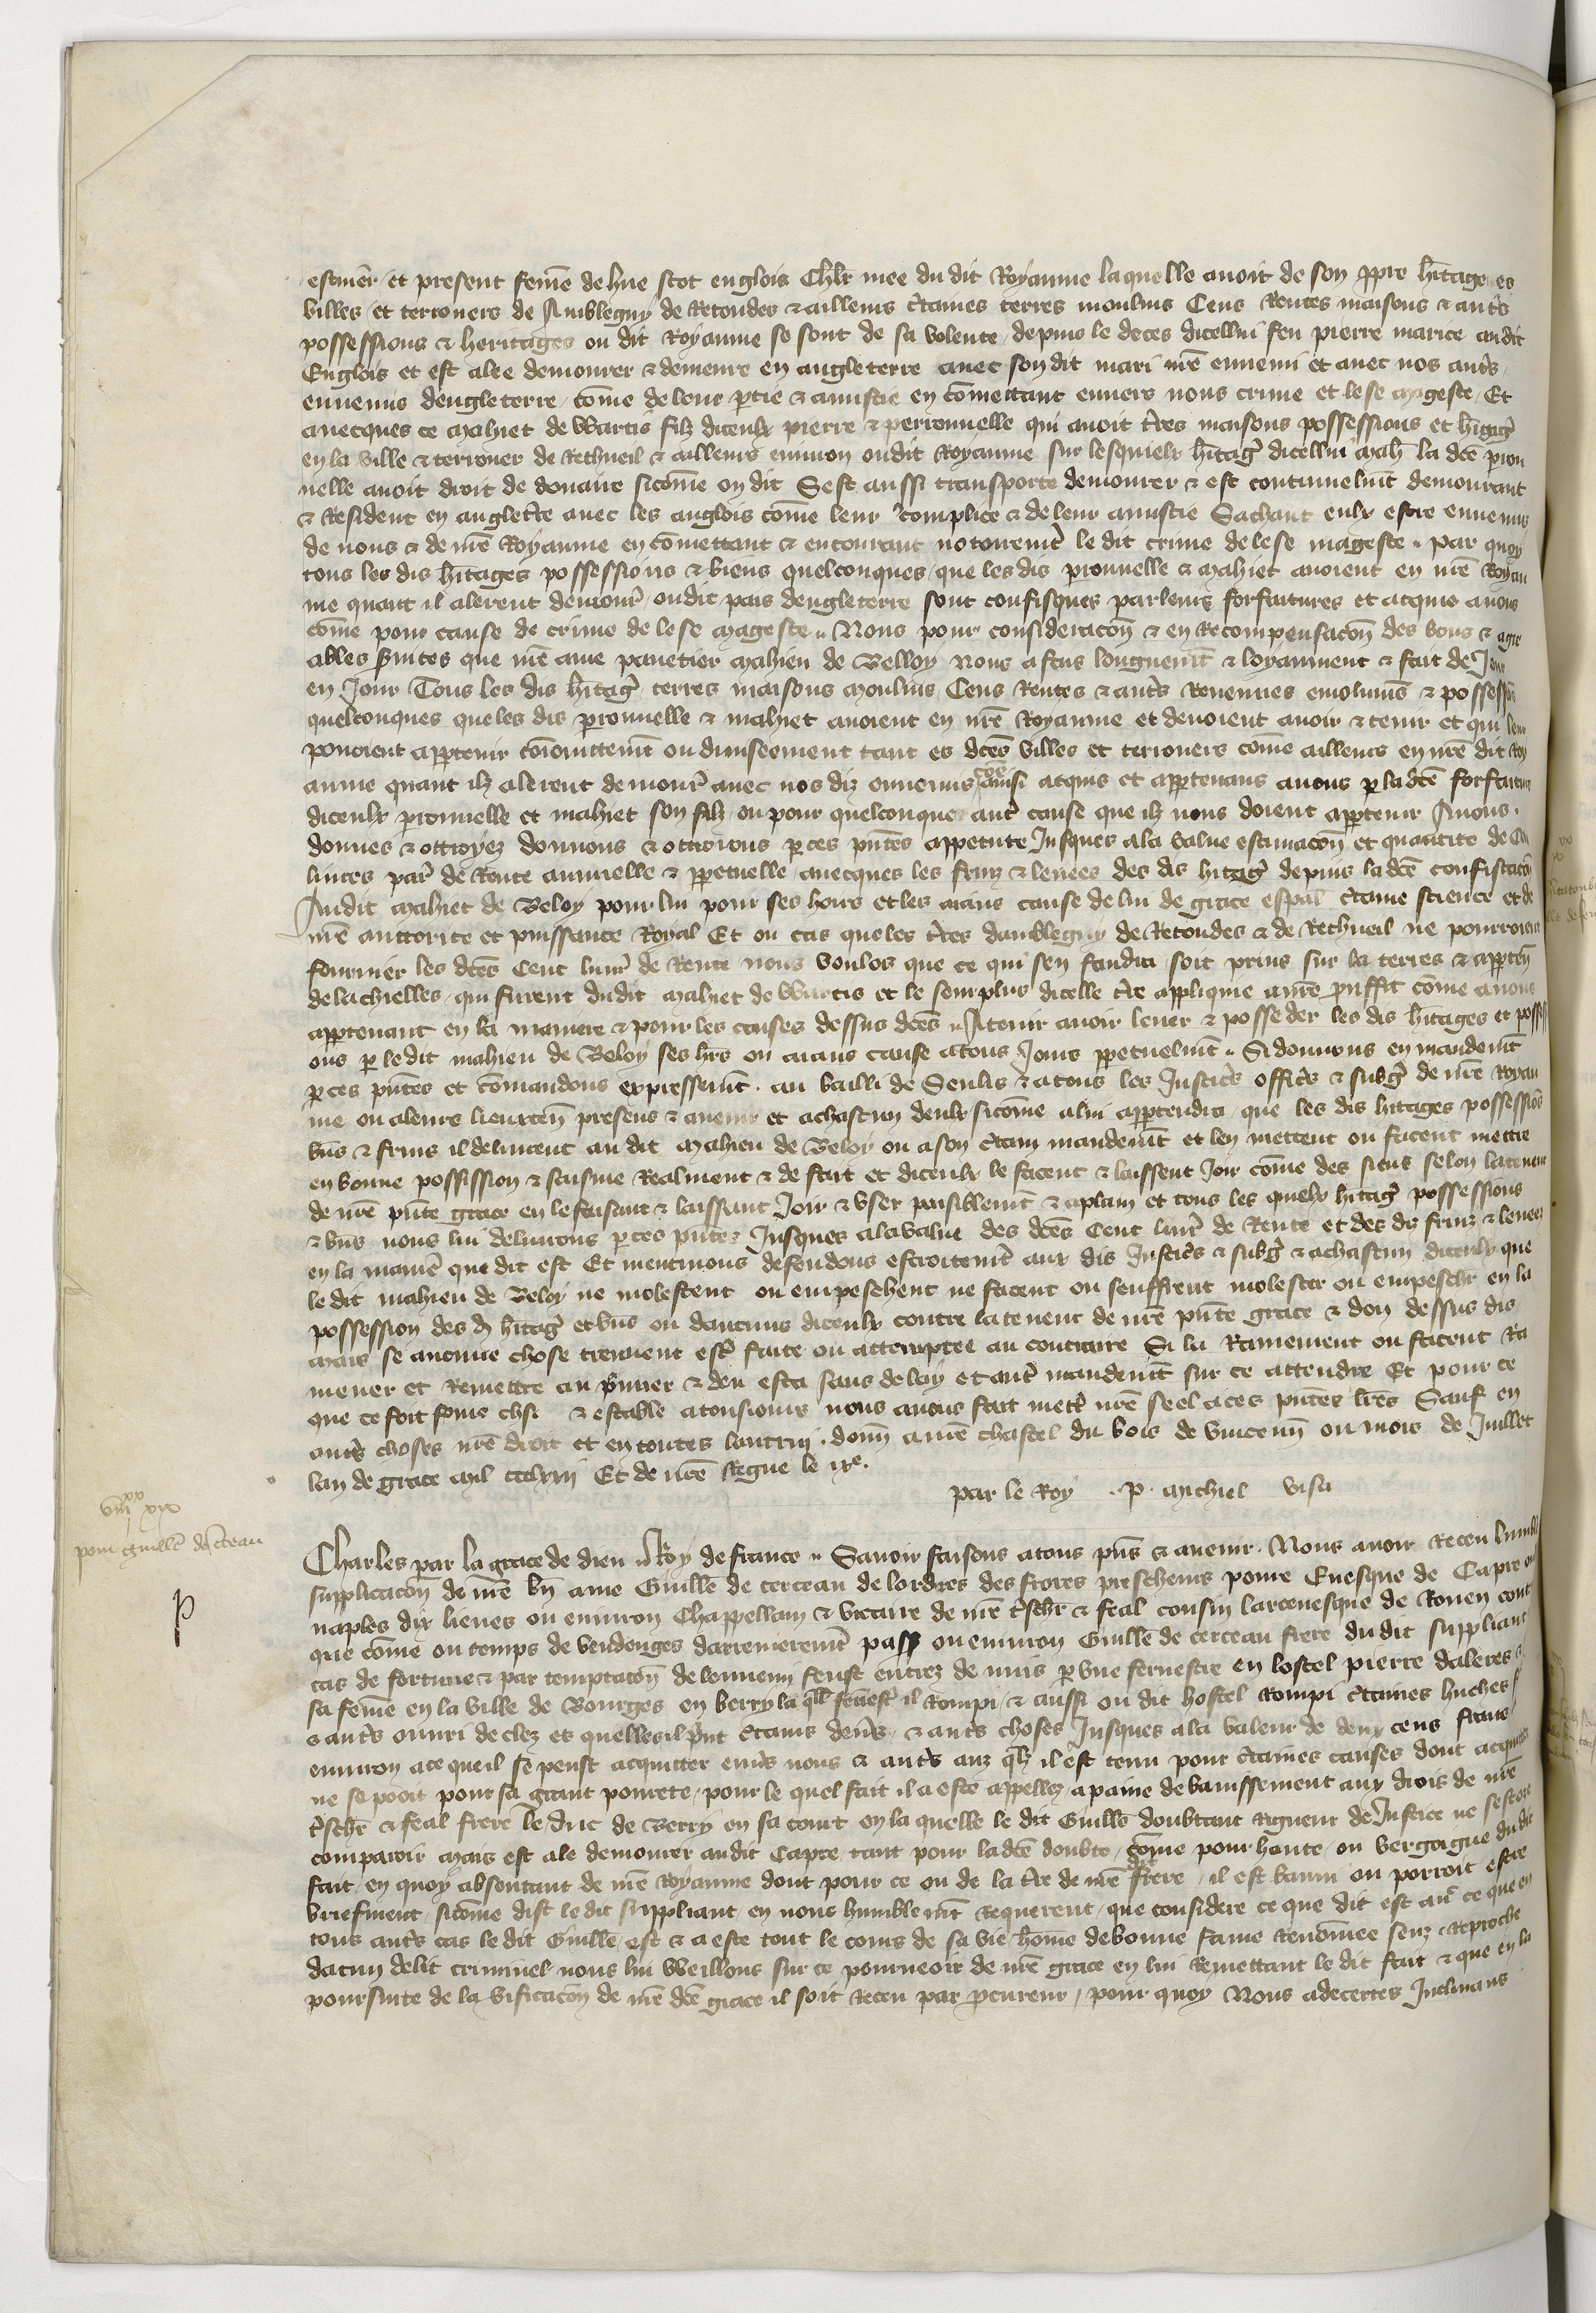 estimer et present feme de hue scot englois chlr mee du dit Royaume laquelle auoit de son ppre hitage es
villes et terrouers de Amblegny de Retondes & ailleurs ctaines terres moulins Cens Rentes maisons & autrs
possessions & heritages ou dit Royaume se sont de sa volente depuis le deces dicellui feu pierre mariee audit
Englois et est alee demourer & demeure en angleterre auec son dit mari nre ennemi et auec nos autrs
ennemis dengleterre come de leur ptie & amistie en comettant enuers nous crime et lese mageste Et
auecques ce mahiet de Wartis filz diceulx pierre & perronnelle qui auoit tres maisons possessions et hitagz
en la ville & terrouer de Rethueil & ailleurs enuiron oudit Royaume sur lesquielx hitagz dicellui mah la dce pron
nelle auoit droit de douaire sicome on dit Sest aussi transporte demourer & est continuelmt demourant
& Resident en angletre auec les anglois come leur complice & de leur amistie Sachant eulx estre ennemis
de nous & de nre Royaume en comettant & encourant notoiremt le dit crime de lese mageste par quoy
tous les dis hitages possessions & biens quelconques que les dis pronnelle & mahiet auoient en nre Royau
me quant il alerent demourr oudit pais dengleterre sont confisques par leurs forfaitures et acquis a nous
come pour cause de crime de lese mageste Nous pour consideracon & en Recompensacon des bons & agre
ables suices que nre ame panetier mahieu de Belloy nous a fais longuemt & loyaument & fait de Jour
en Jour Tous les dis hitagz terres maisons moulins Cens Rentes & autrs Reuenues emolumens & possessions
quelconques que les dis pronnelle & mahiet auoient en nre Royaume et deuoient auoir & tenir et qui leur
pouoient appartenir coniointemt ou diuiseement tant es dces villes et terrouers come ailleurs en nre dit Roy
aume quant ilz alerent demourr auec nos diz ennemis coe ainsi acquis et appartenans a nous p la dce forfaiture
diceulx pronnelle et mahiet son filz ou pour quelconque autr cause que ilz nous doient appartenir Auons
donnes & ottroyez donnons & ottroions p ces pntes Jusques a la value estimacon et quantite de Cent
liures par de Rente annuelle & ppetuelle auecques les fruiz & leuees des dis hitagz depuis la dce confiscacon
Audit mahiet de Beloy pour lui pour ses hoirs et les aians cause de lui de grace espal ctaine science et de
nre auctorite et puissance Royal Et ou cas que les tres damblegny de Retondes & de Rethueil ne pourroient
fournier les dces Cent liures de Rente nous voulos que ce qui sen faudra soit prins sur la terres & apparten
de lachielles qui furent dudit mahiet de Wartis et le seurplus dicelle tre applique a nre prouffit come a nous
appartenant en la maniere & pour les causes dessus dces A tenir auoir leuer & posseder les dis hitages et possessi
ons p le dit mahieu de Beloy ses hrs ou aians cause a tous Jours ppetuelmt Si donnons en mandemt
p ces pntes et comandons expressemt au bailli de Senlis & a tous les Justicrs officrs & subgz de nre Royau
me ou a leurs lieuxten presens & auenir et a chascun deulx sicome a lui appartendra que les dis hitages possessions
bns & fruis il deliurent au dit mahieu de Beloy ou a son ctain mandemt et len mettent ou facent mettre
en bonne possission & saisine Realment & de fait et diceulx le facent & laissent Joir come des siens selon la teneur
de nre pnte grace en le faisant & laissant Joir & vser paisiblemt & a plain et tous les quelx hitagz possessions
& bns nous lui deliurons p ces pntes Jusques a la value des dces Cent liur de Rente et des dis fruiz & leuees
en la manie que dit est Et mentmoins defendons estroitemt aux dis Justicrs & subgz & a chascun diceulx que
le dit mahieu de Beloy ne molestent ou empeschent ne facent ou seuffrent molester ou empeschr en la
possession des d hitagz et bns ou daucuns diceulx contre la teneur de nre pnte grace & don dessus dis
mais se aucune chose treuuent estr faite ou attemptee au contraire Si la Ramainent ou facent Ra
mener et Remettre au pmier & deu esta sans delay et autr mandemt sur ce attendre Et pour ce
que ce soit ferme chose & estable a tousiours nous auons fait mettr nre seel a ces pntes lres Sauf en
autrs choses nre droit et en toutes lautrui donn a nre chastel du bois de vincenn ou mois de Juillet
lan de grace mil ccclxxij Et de nre Regne le ixe
par le Roy p michiel visa
viii xx xix
pour guille de cerceau
p
Charles par la grace de dieu Roy de france Sauoir faisons a tous pns & auenir Nous auoir Receu lumble
supplicacon de nre bn ame Guille de cerceau de lordres des freres prescheurs poure Euesque de Capre ou
naples dix lieues ou enuiron Chappellain & vicaire de nre treschr & feal cousin larceuesque de Rouen cont
que come ou temps de vendenges darreinerement passe ou enuiron Guille de cerceau frere du dit suppliant
cas de fortune & par temptacon de lennemi feust entrez de nuis p vne fernestre en lostel pierre daleres &
sa feme en la ville de Bourges en berry la qlle fenestr il Rompi & aussi ou dit hostel Rompi ctaines huches
& autrs ouuri de clez es quelles il print ctains denrs & autrs choses Jusques a la valeur de deux cens frans
enuiron a ce que il se peust acquitter enurs nous & autrs auz qlz il est tenu pour ctaines causes dont acquiter
ne se pooit pour sa grant pourete pour le quel fait il a este appellez a paine de banissement aux drois de nre
treschr & feal frere le duc de Berry en sa court en la quelle le dit Guille doubtant Rigueur de Justice ne sest ose
comparoir mais est ale demourer audit Capre tant pour la dce doubte come pour honte ou vergoigne du dit
fait en quoy absentant de nre Royaume dont pour ce ou de la tre de nre dit frere il est banni ou porroit estre
briefment sicome dist le dit suppliant en nous humblemt Requerent que considere ce que dit est aur ce que en
tous autrs cas le dit Guille est & a este tout le cours de sa vie home de bonne fame Renomee senz Reproche
dacun delit criminel nous lui Weillons sur ce pourueoir de nre grace en lui Remettant le dit fait & que en la
poursuite de la vificacon de nre dce grace il soit Receu par pcureur pour quoy Nous adecertes Inclinans